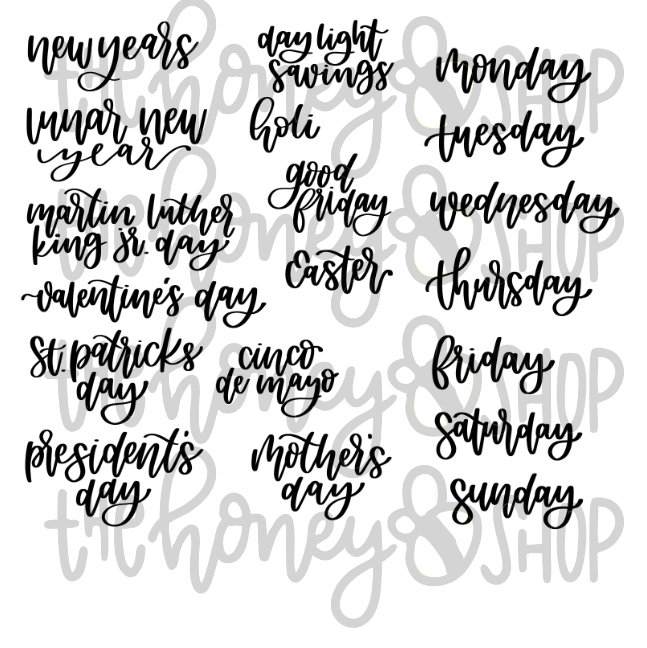 new years
lunar new
year
martin luther
king jr. day
valentine's day
St. patricks
day
president's
day
daylight
savings
holi
good
friday
Easter
cinco
de mayo
mother's
day
monday
tuesday
wednesday
thursday
friday
saturday
sunday
the honey & SHOP
the honey & SHOP
the honey & SHOP
the honey & SHOP